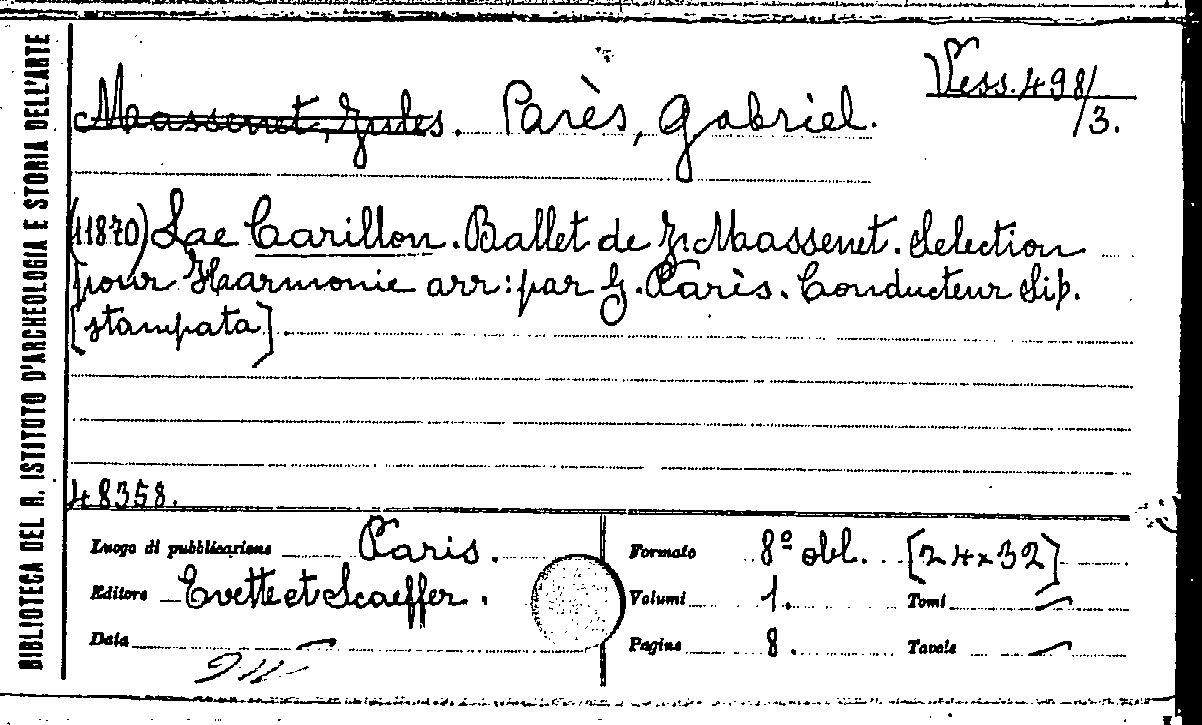 BIBLIOTECA DEL R. ISTITUTO D'ARCHEOLOGIA E STORIA DELL'ARTE
Vess. 498/3.
Massenet, Jules. Parès, Gabriel.
(11870) Lae Carillon. Ballet de J. Massenet. Selection
pour Harmonie arr: par G. Parès. Conducteur Sip.
[stampata]
48358.
Luogo di pubblicazione Paris.
Editore Evette et Scaeffer.
Data —
Formato 8º obl. [24x32]
Volumi 1. Tomi —
Pagine 8. Tavole —